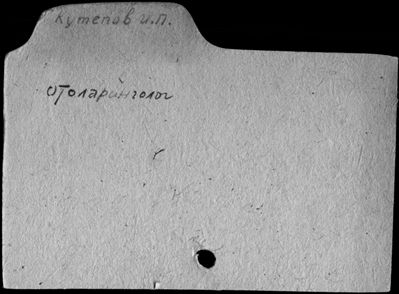 Кутепов И.П.
отоларинголог